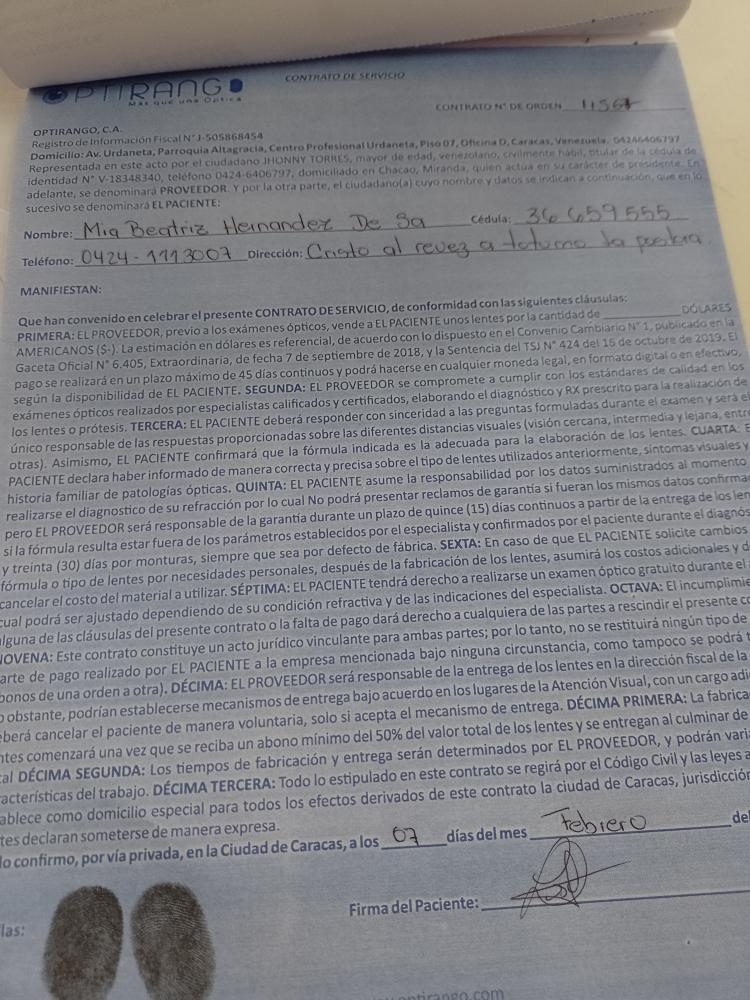 OPTIRANGO
Más que una Óptica
CONTRATO DE SERVICIO
CONTRATO N° DE ORDEN
OPTIRANGO, C.A.
Registro de Información Fiscal N° J-505868454
Domicilio: Av. Urdaneta, Parroquia Altagracia, Centro Profesional Urdaneta, Piso 07, Oficina D, Caracas, Venezuela. 04246406797
Representada en este acto por el ciudadano JHONNY TORRES, mayor de edad, venezolano, civilmente hábil, titular de la cédula de
identidad N° V-18348340, teléfono 0424-6406797, domiciliado en Chacao, Miranda, quien actúa en su carácter de presidente. En
adelante, se denominará PROVEEDOR. Y por la otra parte, el ciudadano(a) cuyo nombre y datos se indican a continuación, que en lo
sucesivo se denominará EL PACIENTE:
Nombre: Mia Beatriz Hernandez De Sa Cédula: 36 659 555
Teléfono: 0424-1113007 Dirección: Cristo al revez a totumo la pastora.
MANIFIESTAN:
Que han convenido en celebrar el presente CONTRATO DE SERVICIO, de conformidad con las siguientes cláusulas:
PRIMERA: EL PROVEEDOR, previo a los exámenes ópticos, vende a EL PACIENTE unos lentes por la cantidad de DÓLARES
AMERICANOS ($-). La estimación en dólares es referencial, de acuerdo con lo dispuesto en el Convenio Cambiario N° 1, publicado en la
Gaceta Oficial N° 6.405, Extraordinaria, de fecha 7 de septiembre de 2018, y la Sentencia del TSJ N° 424 del 16 de octubre de 2019. El
pago se realizará en un plazo máximo de 45 días continuos y podrá hacerse en cualquier moneda legal, en formato digital o en efectivo,
según la disponibilidad de EL PACIENTE. SEGUNDA: EL PROVEEDOR se compromete a cumplir con los estándares de calidad en los
exámenes ópticos realizados por especialistas calificados y certificados, elaborando el diagnóstico y RX prescrito para la realización de
los lentes o prótesis. TERCERA: EL PACIENTE deberá responder con sinceridad a las preguntas formuladas durante el examen y será el
único responsable de las respuestas proporcionadas sobre las diferentes distancias visuales (visión cercana, intermedia y lejana, entre
otras). Asimismo, EL PACIENTE confirmará que la fórmula indicada es la adecuada para la elaboración de los lentes. CUARTA: E
PACIENTE declara haber informado de manera correcta y precisa sobre el tipo de lentes utilizados anteriormente, síntomas visuales y
historia familiar de patologías ópticas. QUINTA: EL PACIENTE asume la responsabilidad por los datos suministrados al momento
realizarse el diagnostico de su refracción por lo cual No podrá presentar reclamos de garantía si fueran los mismos datos confirma
pero EL PROVEEDOR será responsable de la garantía durante un plazo de quince (15) días continuos a partir de la entrega de los len
si la fórmula resulta estar fuera de los parámetros establecidos por el especialista y confirmados por el paciente durante el diagnós
y treinta (30) días por monturas, siempre que sea por defecto de fábrica. SEXTA: En caso de que EL PACIENTE solicite cambios
fórmula o tipo de lentes por necesidades personales, después de la fabricación de los lentes, asumirá los costos adicionales y d
cancelar el costo del material a utilizar. SÉPTIMA: EL PACIENTE tendrá derecho a realizarse un examen óptico gratuito durante el
cual podrá ser ajustado dependiendo de su condición refractiva y de las indicaciones del especialista. OCTAVA: El incumplimie
alguna de las cláusulas del presente contrato o la falta de pago dará derecho a cualquiera de las partes a rescindir el presente co
NOVENA: Este contrato constituye un acto jurídico vinculante para ambas partes; por lo tanto, no se restituirá ningún tipo de
arte de pago realizado por EL PACIENTE a la empresa mencionada bajo ninguna circunstancia, como tampoco se podrá t
bonos de una orden a otra). DÉCIMA: EL PROVEEDOR será responsable de la entrega de los lentes en la dirección fiscal de la
o obstante, podrían establecerse mecanismos de entrega bajo acuerdo en los lugares de la Atención Visual, con un cargo adi
eberá cancelar el paciente de manera voluntaria, solo si acepta el mecanismo de entrega. DÉCIMA PRIMERA: La fabrica
ntes comenzará una vez que se reciba un abono mínimo del 50% del valor total de los lentes y se entregan al culminar de
al DÉCIMA SEGUNDA: Los tiempos de fabricación y entrega serán determinados por EL PROVEEDOR, y podrán vari
racterísticas del trabajo. DÉCIMA TERCERA: Todo lo estipulado en este contrato se regirá por el Código Civil y las leyes a
ablece como domicilio especial para todos los efectos derivados de este contrato la ciudad de Caracas, jurisdicción
tes declaran someterse de manera expresa.
lo confirmo, por vía privada, en la Ciudad de Caracas, a los 07 días del mes Febrero del
Firma del Paciente:
las:
optirango.com